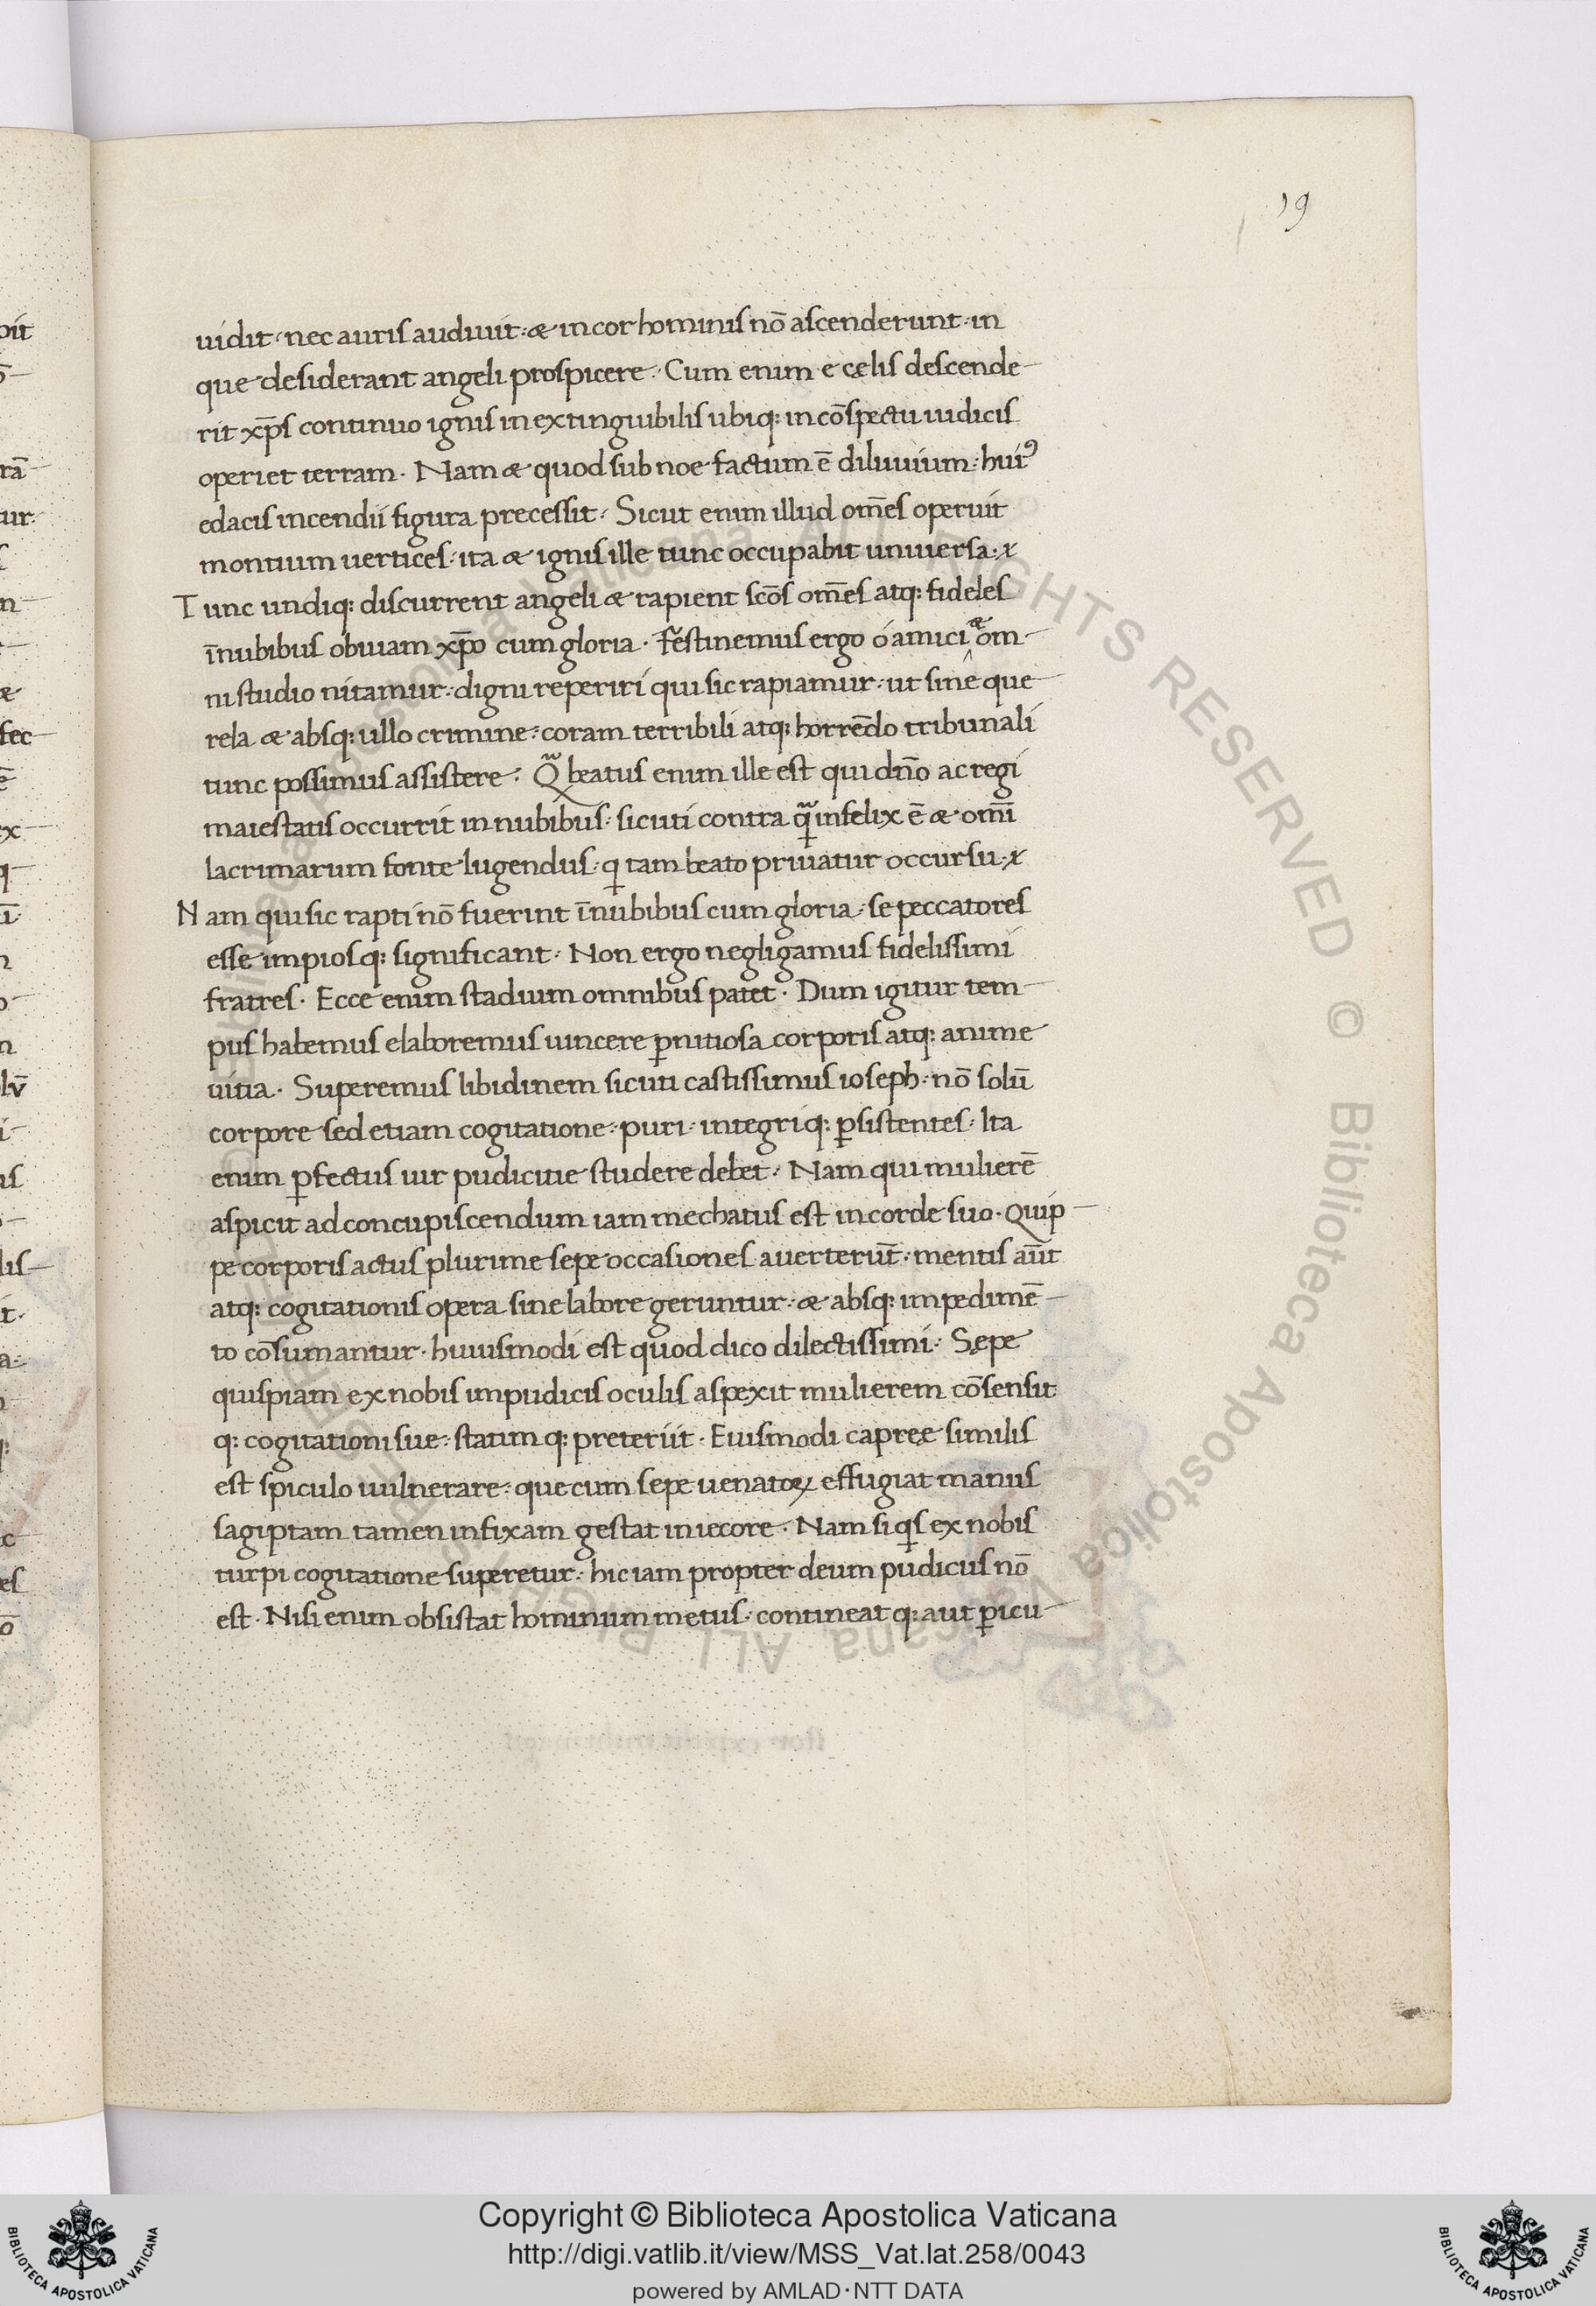 19
uidit· nec auris audiuit: & in cor hominis nō ascenderunt· in
que desiderant angeli prospicere· Cum enim e cęlis descende-
rit xp̄s continuo ignis in extinguibilis ubiq: in cōspectu iudicis
operiet terram· Nam & quod sub noe factum ē diluuium: huiꝰ
edacis incendii figura precessit· Sicut enim illud om̄es operuit
montium uertices· ita & ignis ille tunc occupabit uniuersa·
Tunc undiq: discurrent angeli & rapient scōs om̄es atq: fideles
ī nubibus obuiam xp̄o cum gloria· Festinemus ergo ó amici & om-
ni studio nitamur: digni reperiri qui sic rapiamur: ut sine que-
rela & absq: ullo crimine: coram terribili atq: horrēdo tribunali
tunc possimus assistere· Qᷓ beatus enim ille est qui dn̄o ac regi
maiestatis occurrit in nubibus· sicuti contra qᷓ infelix ē & om̄i
lacrimarum fonte lugendus· qi tam beato priuatur occursu·
Nam qui sic rapti nō fuerint ī nubibus cum gloria· se peccatores
esse impiosq: significant· Non ergo negligamus fidelissimi
fratres· Ecce enim stadium omnibus patet· Dum igitur tem-
pus habemus elaboremus uincere ꝑnitiosa corporis atq: anime
uitia· Superemus libidinem sicuti castissimus ioseph· nō solū
corpore sed etiam cogitatione· puri· integriq: ꝑsistentes· Ita
enim ꝑfectus uir pudicitie studere debet· Nam qui mulierē
aspicit ad concupiscendum iam mechatus est in corde suo· Quip-
pe corporis actus plurime sepe occasiones auerterūt: mentis aūt
atq: cogitationis opera sine labore geruntur: & absq: impedimē-
to cōsumantur· huiusmodi est quod dico dilectissimi· Sępe
quispiam ex nobis impudicis oculis aspexit mulierem cōsensit
q: cogitationi sue: statimq: preteriit· Eiusmodi capreę similis
est spiculo uulnerare: que cum sepe uenatoꝝ effugiat manus
sagiptam tamen infixam gestat in iecore· Nam si qis ex nobis
turpi cogitatione superetur: hic iam propter deum pudicus nō
est· Nisi enim obsistat hominum metus· contineatq: aut ꝑicu-
Copyright © Biblioteca Apostolica Vaticana
http://digi.vatlib.it/view/MSS_Vat.lat.258/0043
powered by AMLAD·NTT DATA